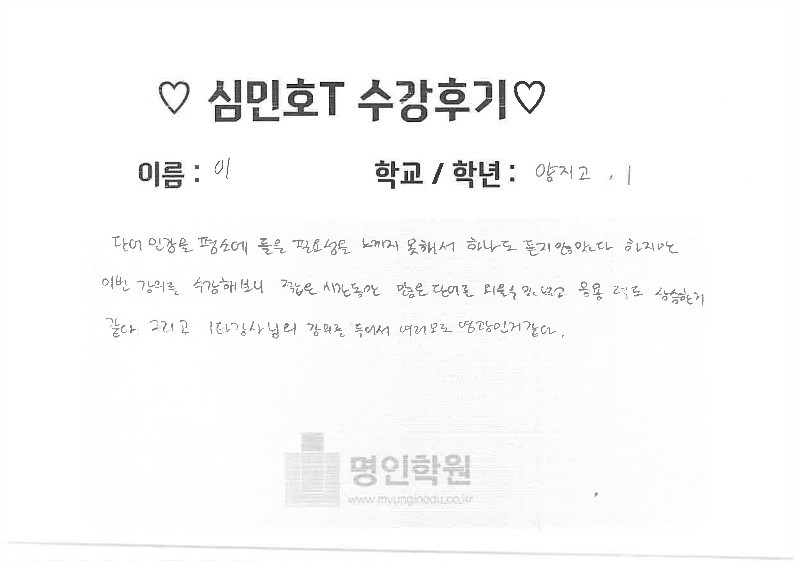 ♡ 심민호T 수강후기♡
이름 : 이
학교 / 학년 : 양지고 , 1
단어 인강을 평소에 들을 필요성을 느끼지 못해서 하나도 듣지 않았다 하지만
이번 강의를 수강해보니 짧은 시간동안 많은 단어를 외울수 있었고 응용 력도 상승한거
같다 그리고 1타강사님의 강의를 들어서 여러모로 영광인거같다.
명인학원
www.myunginedu.co.kr